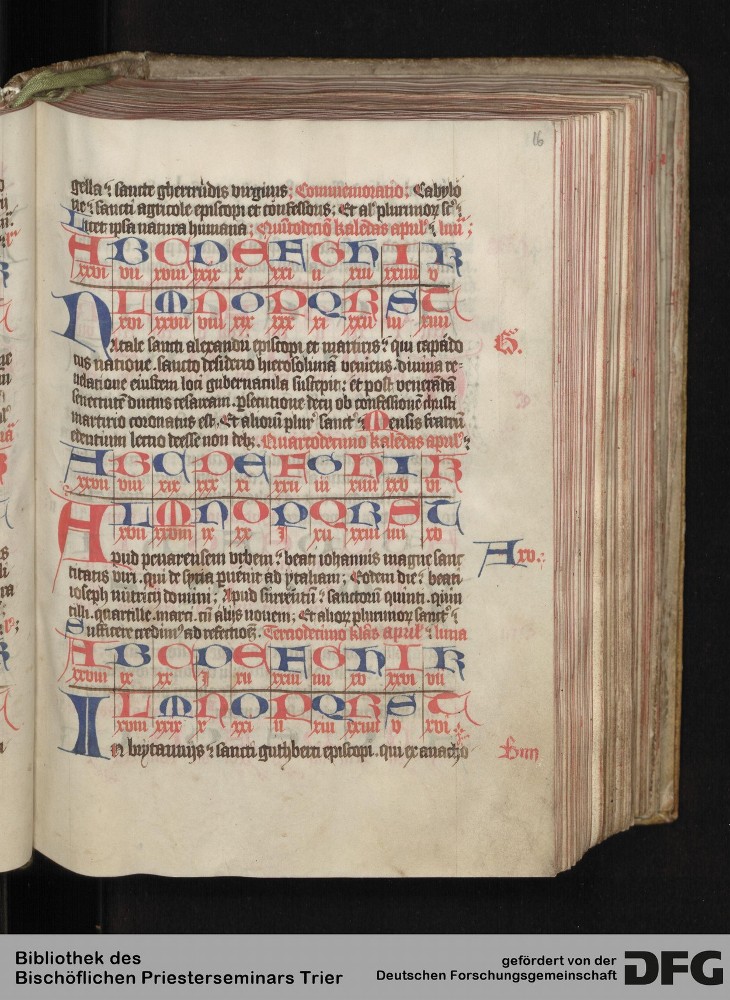 16
gella ⁊ sancte ghertrudis virginis; Commemoratio; Cabylo
ne ⁊ sancti agricole episcopi et confessoris; Et al' plurimoꝝ sc̄ ⁊
Licet ipsa natura humana; Quītodecīo kalēdas apriľ ⁊ lun̄;
A B C D E F G H I K
xxvi vii xviii xxix x xxi ii xiii xxiiii v
L M N O P Q R S T
xvi xxvii viii xix xxx xi xxii iii xiiii
Natale sancti alexandri episcopi et martiris ⁊ qui capado
cus natione. sancto desiderio hierosolimā veniens. diuina re-
uelatione eiusdem loci gubernacula suscepit; et post venerādā
senectutē ductus cesaream. psecutione decij ob confessionē christi
martirio coronatus est. Et aliorū plurꝰ sanctꝰ ⁊ Mensis fratrū
edentium lectio deesse non debꝫ. Quartodecimo kalēdas apriľ ⁊
G.
A B C D E F G H I K
xxvii viii xix xxx xi xxii iii xiiii xxv vi
L M N O P Q R S T
xvii xxviii ix xx j xii xxiii iiii xv
Apud penarensem vrbem ⁊ beati iohannis magne sanc
titatis viri. qui de syria puenit ad ytaliam; Eodem die ⁊ beati
ioseph nutricij domini; Apud surrentū ⁊ sanctorū quinti. quin
tilli. quartille. marci. cū alijs nouem; Et alioꝝ plurimoꝝ sanctꝰ ⁊
Sufficere credimꝰ ad refectiōꝫ. Terciodecimo klās apriľ ⁊ luna
A xv.:
A B C D E F G H I K
xxviii ix xx j xii xxiii iiii xv xxvi vii
L M N O P Q R S T
xviii xxix x xxi ii xiii xxiiii v xvi
In brytannijs ⁊ sancti guthberti episcopi. qui ex anacho
Bibliothek des
Bischöflichen Priesterseminars Trier
gefördert von der
Deutschen Forschungsgemeinschaft
DFG